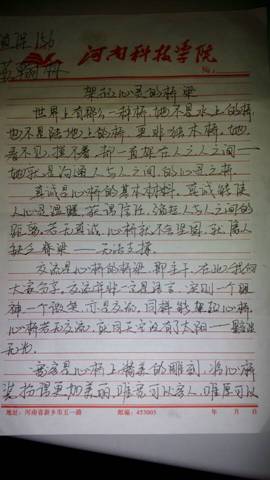 植保156
河南科技学院
No.
架起心灵的桥梁
世界上有那么一种桥,她不是水上的桥,
也不是陆地上的桥,更非独木桥,她
看不见,摸不着,却一直架在人与人之间——
她就是沟通人与人之间的心灵之桥.
真诚是心桥的基本材料,真诚能使
人心灵温暖,获得信任,缩短人与人之间的
距离,若无真诚,心桥就不会坚固,就像人
缺乏脊梁——无法支撑.
交流是心桥的桥梁,即主干,在此我们
大家分享,交流并非一定是语言,实则一个眼
神一个微笑,亦是交流,同样能架起心桥,
心桥若无交流,就同天空没有了太阳——黯淡
无光.
宽容是心桥上精美的雕刻,将心桥
装扮得更加美丽,唯宽可以容人,唯厚可以
地址:河南省新乡市五一路 邮编:453003 年 月 日